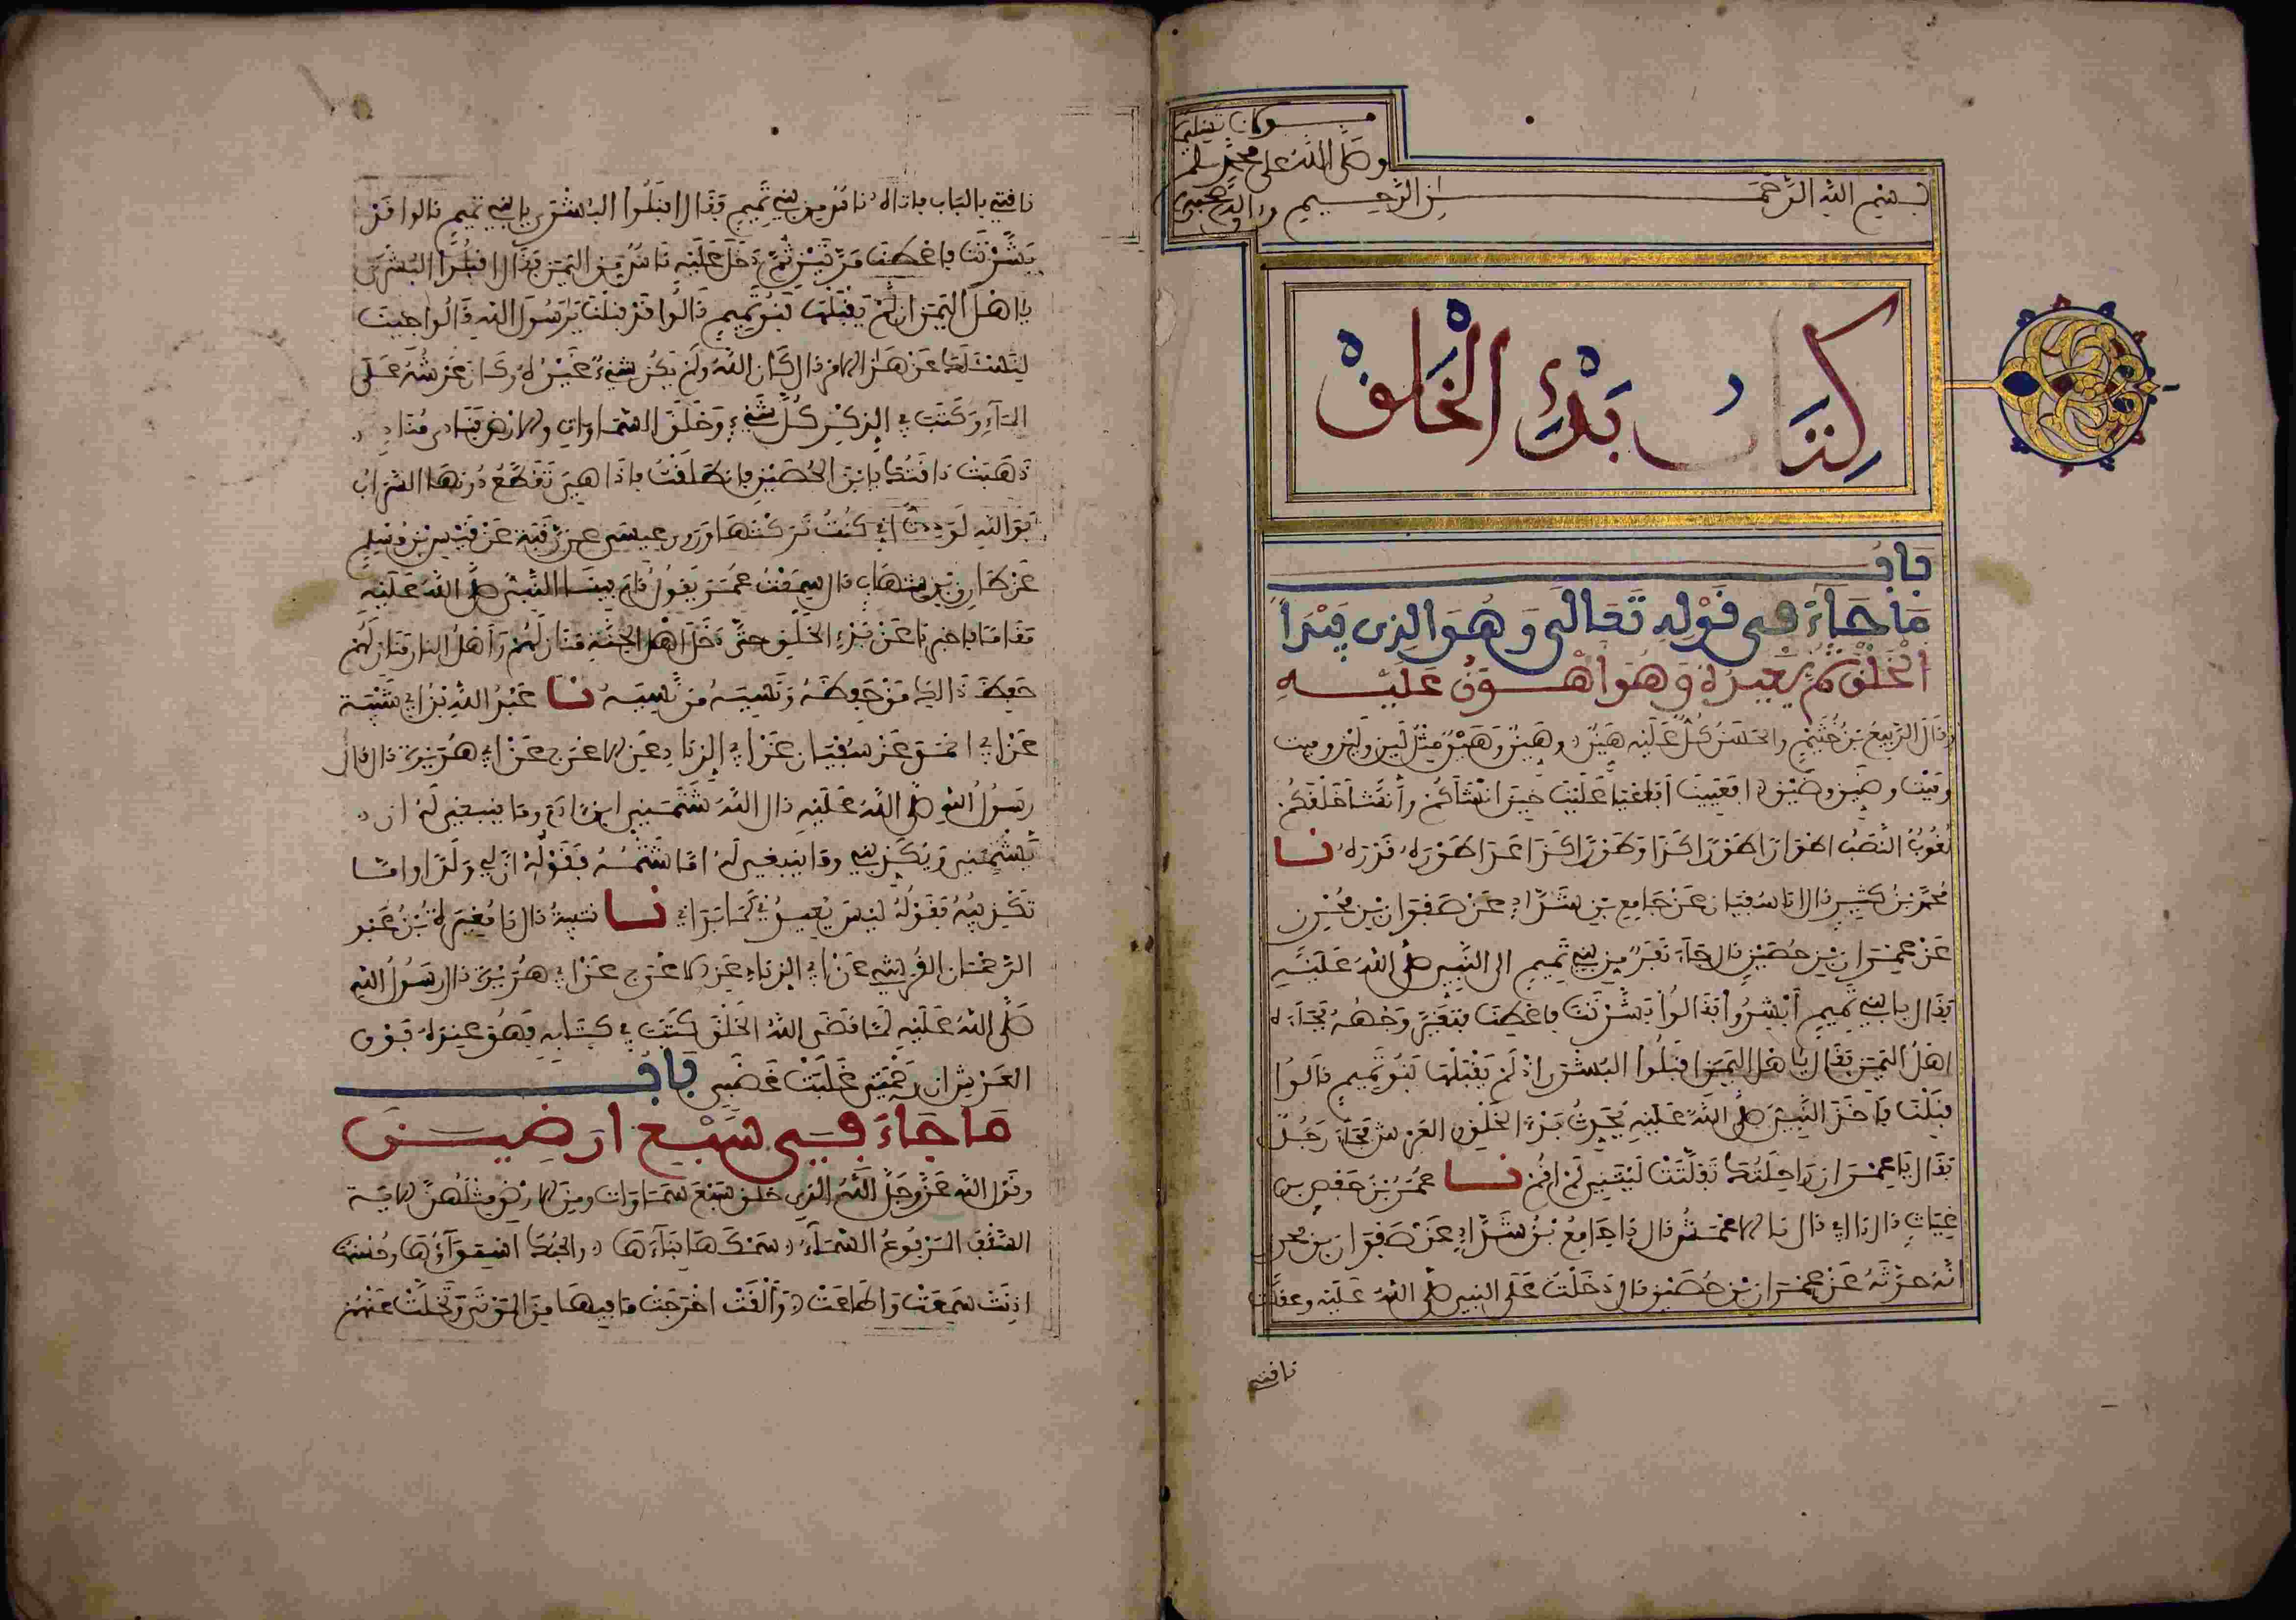 وصلى الله على محمد
بسم الله الرحمن الرحيم
كتاب بدء الخلق
باب
ما جاء في قوله تعالى وهو الذي يبدأ
الخلق ثم يعيده وهو أهون عليه
وقال الربيع بن خثيم والحسن كل عليه هين وهين وهين مثل لين ولين وميت
وميت وضيق وضيق أفعيينا أفأعيا علينا حين أنشأكم وأنشأ خلقكم
لغوب النصب أطوارا طورا كذا وطورا كذا عدا طوره قدره نا
محمد بن كثير قال انا سفيان عن جامع بن شداد عن صفوان بن محرز
عن عمران بن حصين قال جاء نفر من بني تميم الى النبي صلى الله عليه
فقال يا بني تميم أبشروا فقالوا بشرتنا فأعطنا فتغير وجهه فجاءه
اهل اليمن فقال يا اهل اليمن اقبلوا البشرى اذ لم يقبلها بنو تميم قالوا
قبلنا فأخذ النبي صلى الله عليه يحدث بدء الخلق والعرش فجاء رجل
فقال يا عمران راحلتك تفلتت ليتني لم اقم نا عمر بن حفص بن
غياث قال نا ابي قال نا الاعمش قال نا جامع بن شداد عن صفوان بن محرز
انه حدثه عن عمران بن حصين قال دخلت على النبي صلى الله عليه وعقلت
ناقتي
ناقتي بالباب فاتاه ناس من بني تميم فقال اقبلوا البشرى يا بني تميم قالوا قد
بشرتنا فاعطنا مرتين ثم دخل عليه ناس من اليمن فقال اقبلوا البشرى
يا اهل اليمن ان لم يقبلها بنو تميم قالوا قد قبلنا يرسول الله قالوا جينا
لنسئلك عن هذا الامر قال كان الله ولم يكن شيء غيره وكان عرشه على
الماء وكتب في الذكر كل شيء وخلق السماوات والارض فنادى مناد
ذهبت ناقتك يا بن الحصين فانطلقت فاذا هي تقطع دونها السراب
فوالله لوددت اني كنت تركتها وروى عيسى عن رقبة عن قيس بن مسلم
عن طارق بن شهاب قال سمعت عمر يقول قام فينا النبي صلى الله عليه
مقاما فاخبرنا عن بدء الخلق حتى دخل اهل الجنة منازلهم وأهل النار منازلهم
حفظ ذالك من حفظه ونسيه من نسيه نا عبد الله بن ابي شيبة
عن ابي احمد عن سفيان عن ابي الزناد عن الاعرج عن ابي هريرة قال قال
رسول الله صلى الله عليه قال الله شتمني ابن ءادم وما ينبغي له ان
يشتمني ويكذبني وما ينبغي له اما شتمه فقوله ان لي ولدا واما
تكذيبه فقوله ليس يعيدني كما بداني نا قتيبة قال نا مغيرة بن عبد
الرحمان القرشي عن ابي الزناد عن الاعرج عن ابي هريرة قال رسول الله
صلى الله عليه لما قضى الله الخلق كتب في كتابه فهو عنده فوق
العرش ان رحمتي غلبت غضبي باب
ما جاء في سبع ارضين
وقول الله عز وجل الله الذي خلق سبع سماوات ومن الارض مثلهن الاية
السقف المرفوع السماء سمكها بناءها والحبك استواؤها وحسنها
اذنت سمعت واطاعت وألقت اخرجت ما فيها من الموتى وتخلت عنهم